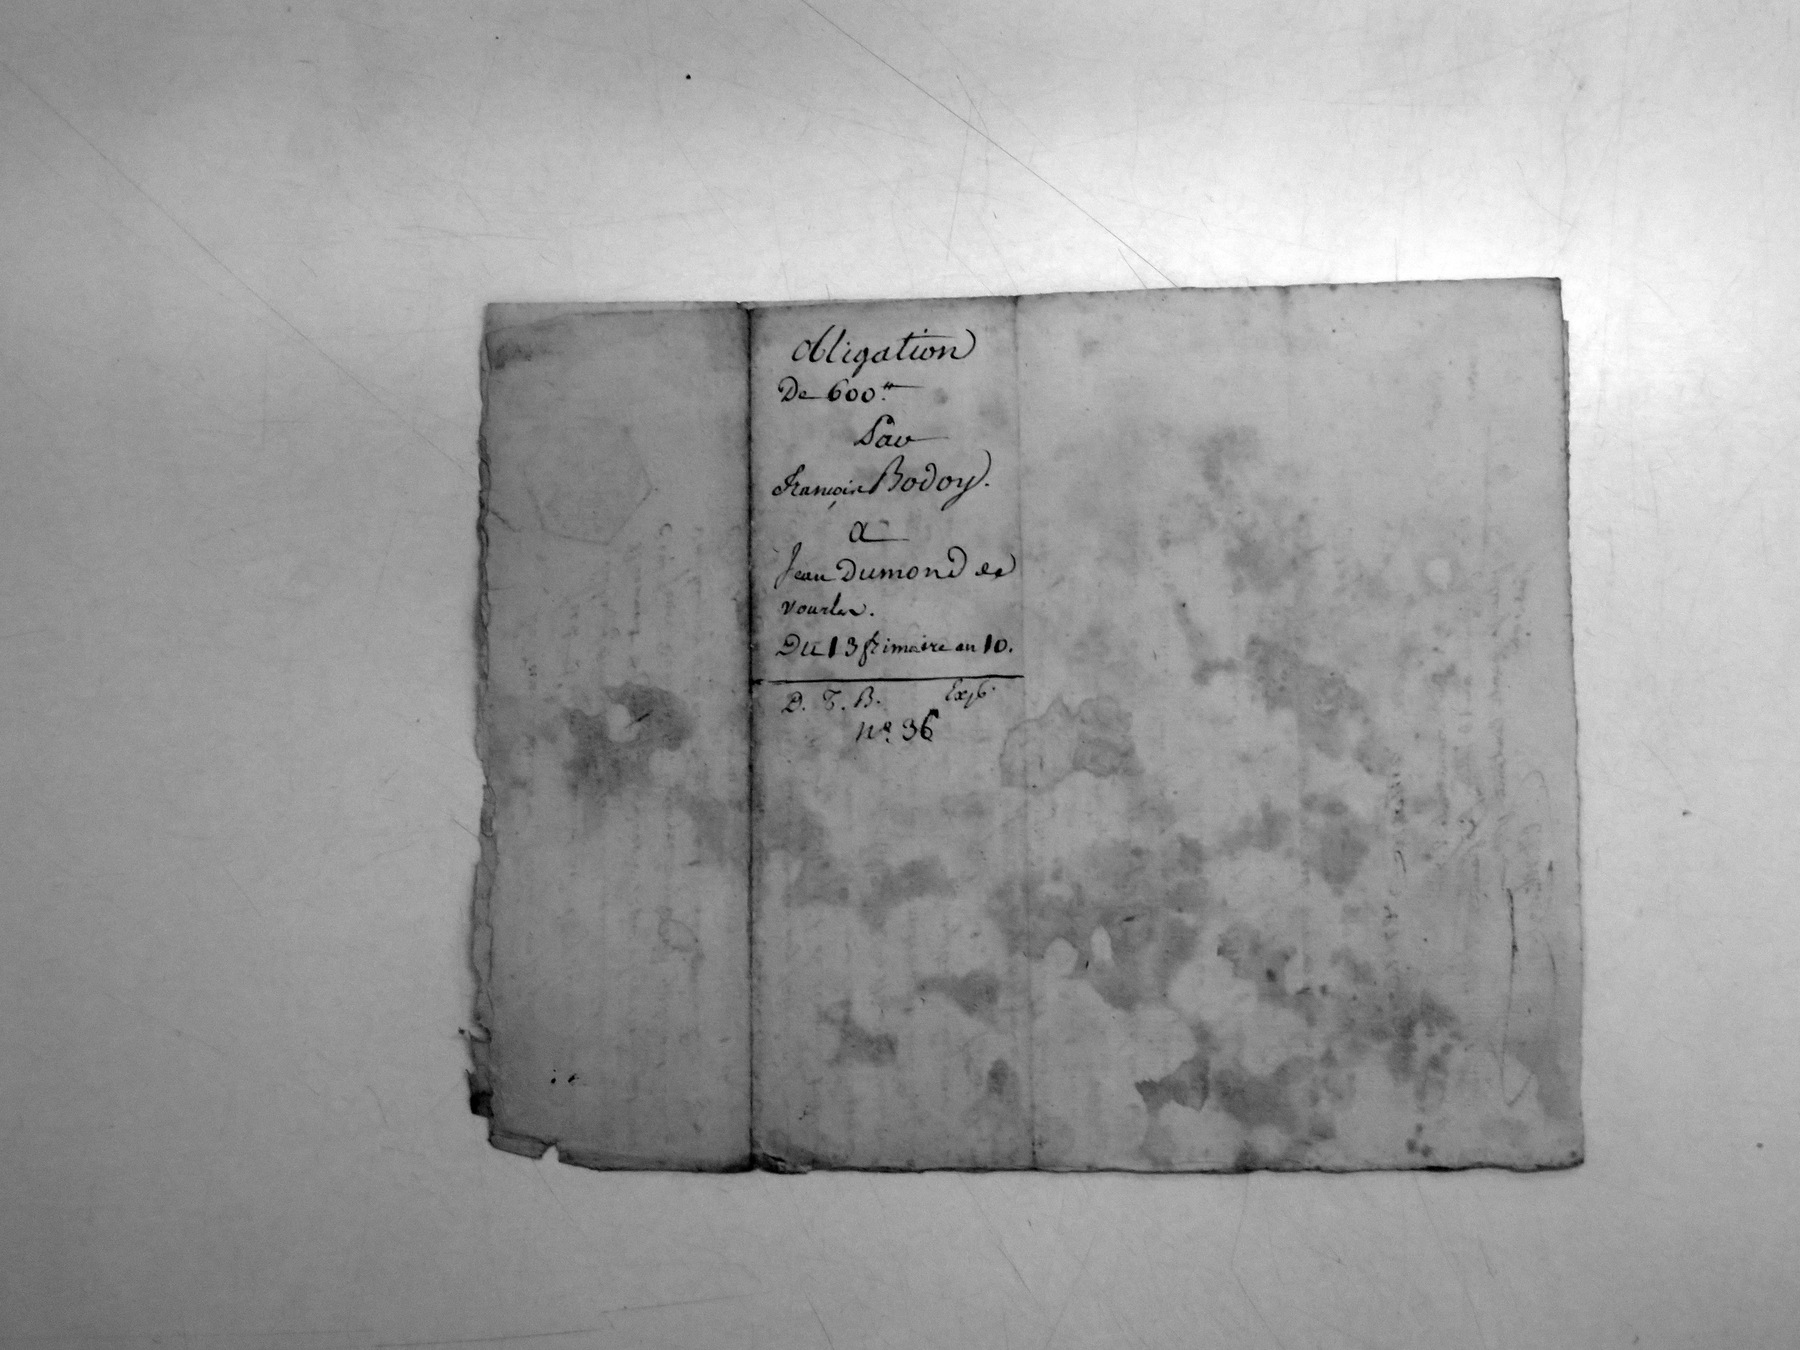 Obligation
De 600.tt
Par
François Bodoy.
a
Jean Dumond de
vourles.
Du 13 frimaire an 10.
D. T. B. Exp.
n.º 36